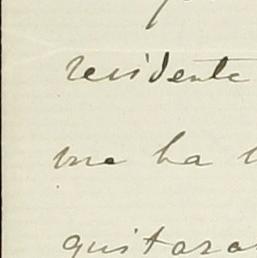 residente
me ha
quitaran